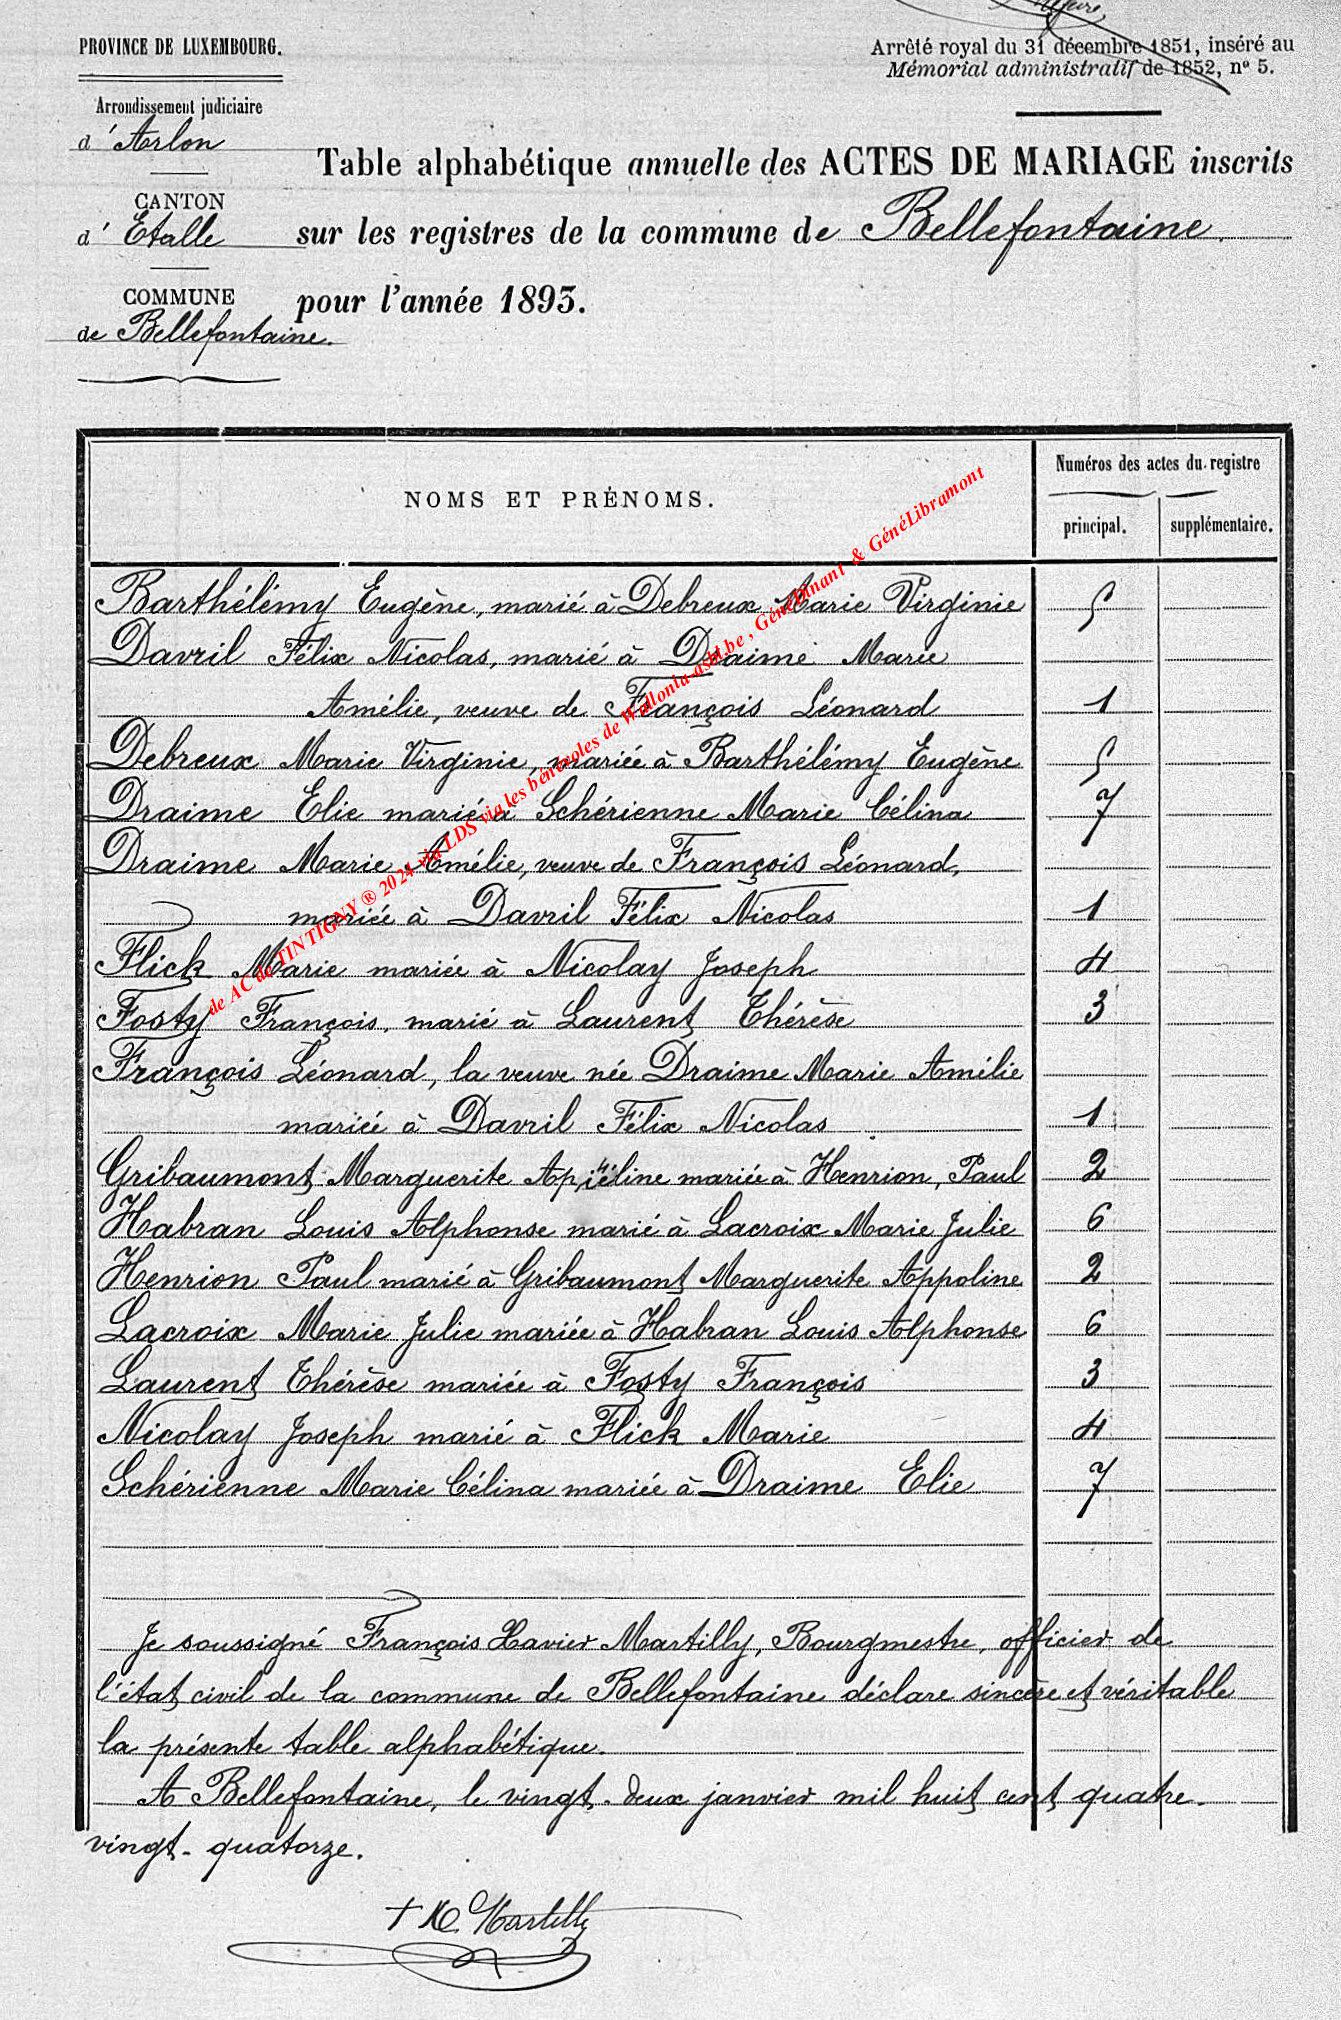 PROVINCE DE LUXEMBOURG.
Arrondissement judiciaire
d'Arlon
CANTON
d'Etalle
COMMUNE
de Bellefontaine.
Arrêté royal du 31 décembre 1851, inséré au
Mémorial administratif de 1852, nº 5.
Table alphabétique annuelle des ACTES DE MARIAGE inscrits
sur les registres de la commune de Bellefontaine.
pour l'année 1893.
NOMS ET PRÉNOMS.
Numéros des actes du registre
principal. supplémentaire.
Barthélémy Eugène, marié à Debreux Marie Virginie 5
Davril Félix Nicolas, marié à Draime Marie
Amélie, veuve de François Léonard 1
Debreux Marie Virginie, mariée à Barthélémy Eugène 5
Draime Elie marié à Schérienne Marie Célina 7
Draime Marie Amélie, veuve de François Léonard,
mariée à Davril Félix Nicolas 1
Flick Marie mariée à Nicolay Joseph 4
Fosty François, marié à Laurent Thérèse 3
François Léonard, la veuve née Draime Marie Amélie
mariée à Davril Félix Nicolas 1
Gribaumont Marguerite mariée à Henrion, Paul 2
Habran Louis Alphonse marié à Lacroix Marie Julie 6
Henrion Paul marié à Gribaumont Marguerite Appoline 2
Lacroix Marie Julie mariée à Habran Louis Alphonse 6
Laurent Thérèse mariée à Fosty François 3
Nicolay Joseph marié à Flick Marie 4
Schérienne Marie Célina mariée à Draime Elie 7
Je soussigné François Xavier Martilly, Bourgmestre, officier de
l'état civil de la commune de Bellefontaine déclare sincère et véritable
la présente table alphabétique.
A Bellefontaine, le vingt-deux janvier mil huit cent quatre-
vingt-quatorze.
Martilly
de AC de TINTIGNY ® 2024 via LDS via les bénévoles de Wallonia-asbl.be , GénéDinant & GénéLibramont